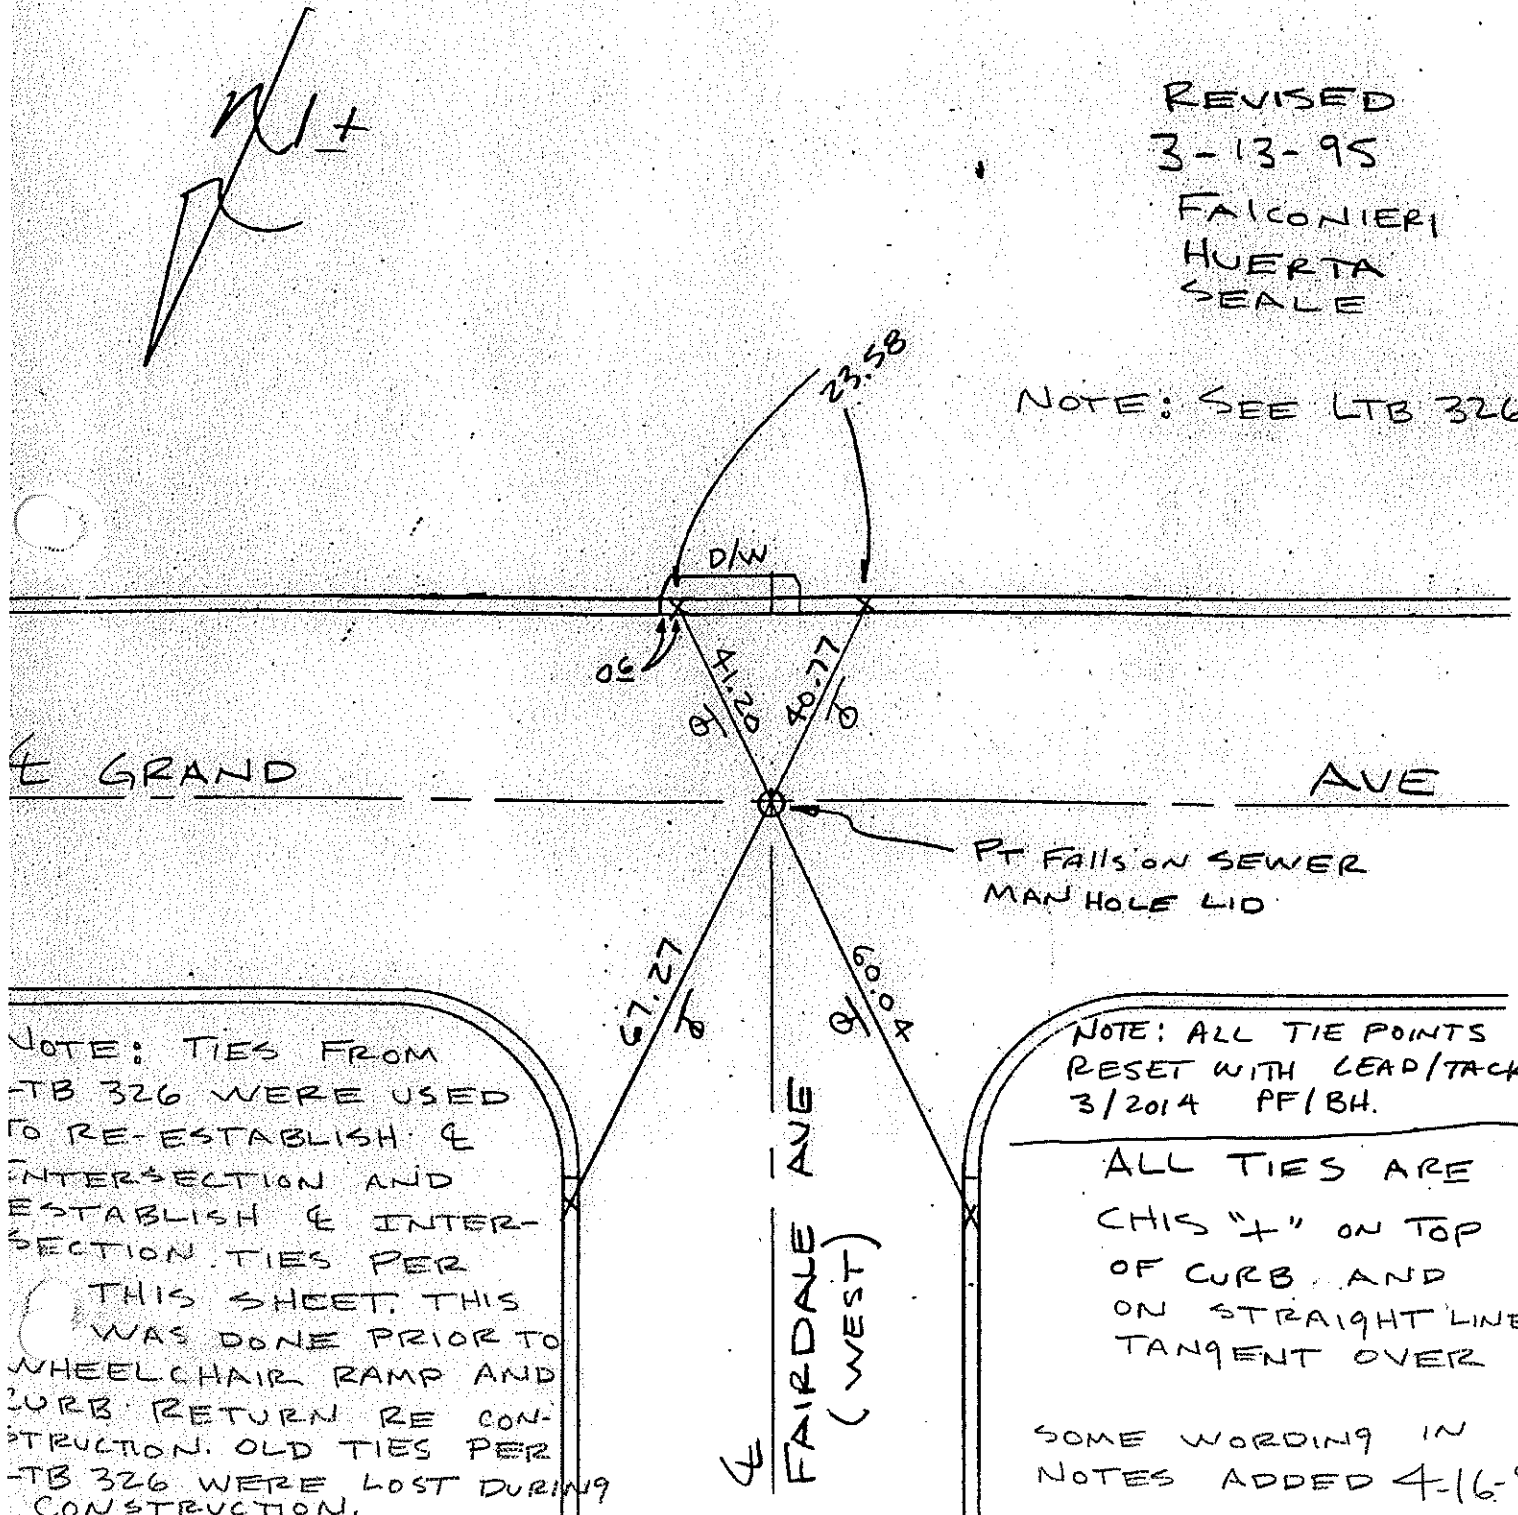 N±
REVISED
3-13-95
FALCONIERI
HUERTA
SEALE
NOTE: SEE LTB 326
23.58
D/W
0.6
41.20
40.77
℄ GRAND
AVE
PT FALLS ON SEWER
MAN HOLE LID
67.27
60.04
NOTE: TIES FROM
-TB 326 WERE USED
TO RE-ESTABLISH ℄
INTERSECTION AND
ESTABLISH ℄ INTER-
SECTION TIES PER
THIS SHEET. THIS
WAS DONE PRIOR TO
WHEELCHAIR RAMP AND
CURB RETURN RE CON-
STRUCTION. OLD TIES PER
-TB 326 WERE LOST DURING
CONSTRUCTION.
℄ FAIRDALE AVE
(WEST)
NOTE: ALL TIE POINTS
RESET WITH LEAD/TACK
3/2014 PF/BH.
ALL TIES ARE
CHIS "+" ON TOP
OF CURB AND
ON STRAIGHT LINE
TANGENT OVER
SOME WORDING IN
NOTES ADDED 4-16-